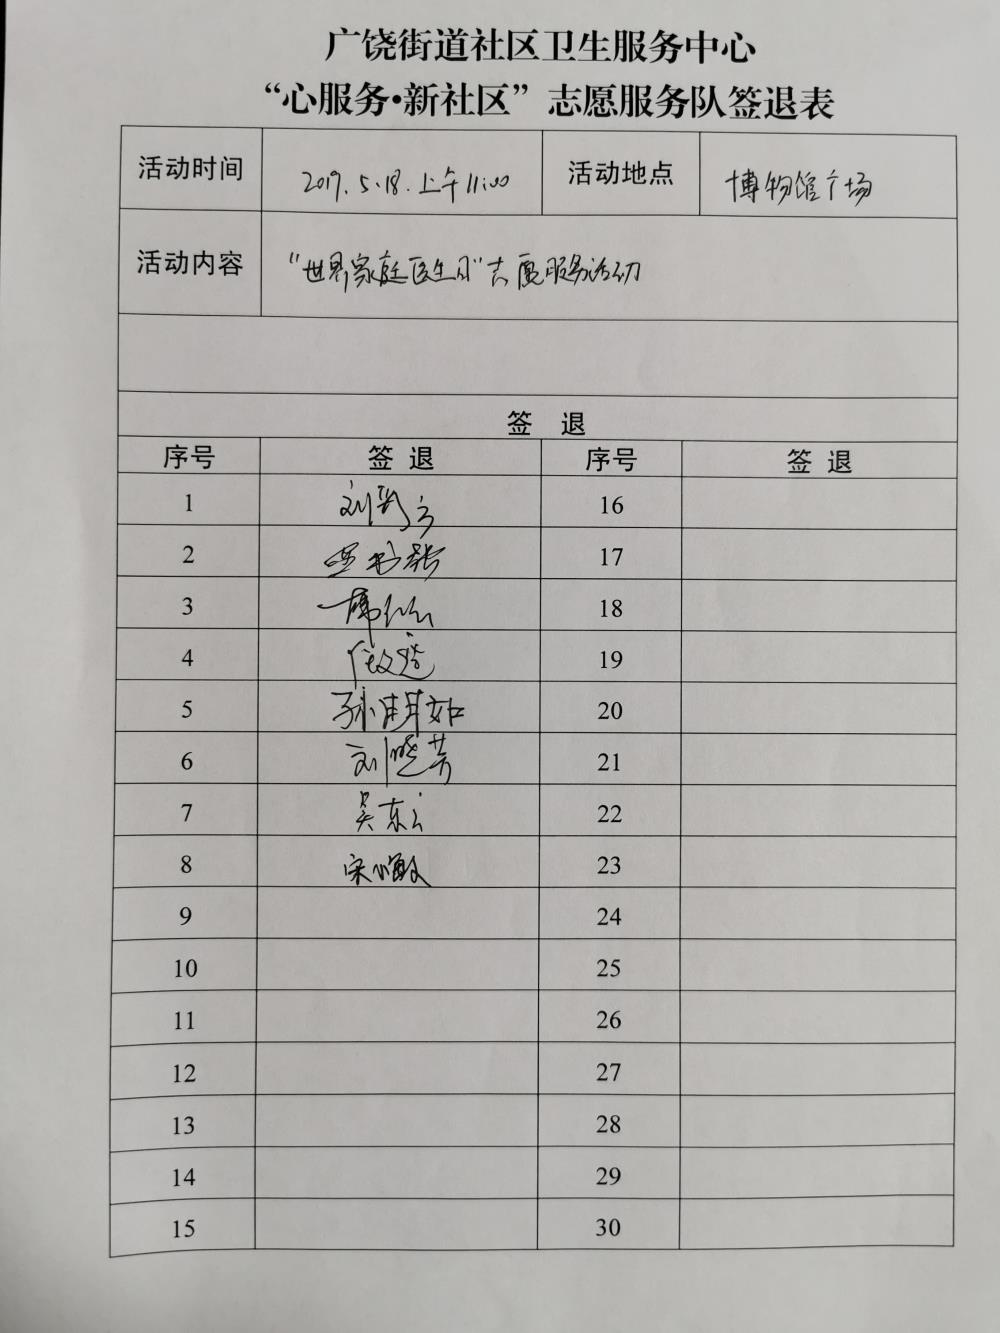 广饶街道社区卫生服务中心
“心服务·新社区”志愿服务队签退表
活动时间 2019.5.18.上午11:00 活动地点 博物馆广场
活动内容 “世界家庭医生日”志愿服务活动
签 退
序号 签 退 序号 签 退
1 16
2 17
3 18
4 19
5 孙清如 20
6 刘晓芳 21
7 吴东云 22
8 宋小敏 23
9 24
10 25
11 26
12 27
13 28
14 29
15 30